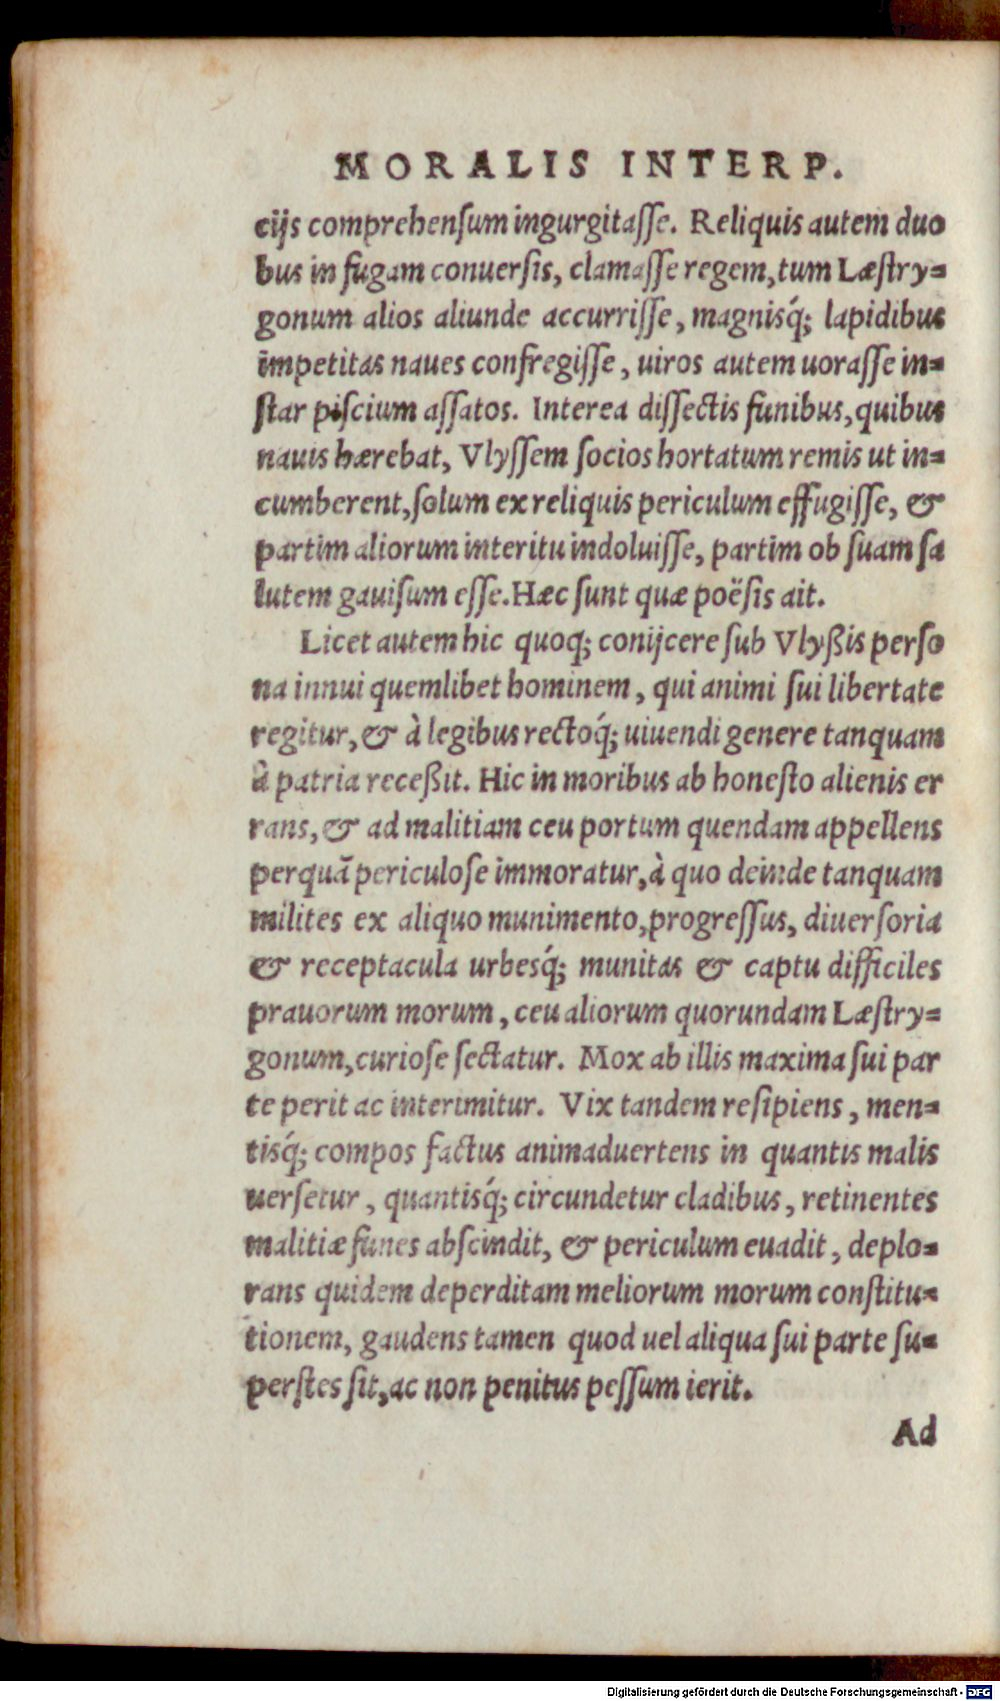 MORALIS INTERP.
cijs comprehenſum ingurgitaſſe. Reliquis autem duo
bus in fugam conuerſis, clamaſſe regem, tum Læſtry=
gonum alios aliunde accurriſſe, magnisq́; lapidibus
impetitas naues confregiſſe, uiros autem uoraſſe in=
ſtar piſcium aſſatos. Interea diſſectis funibus, quibus
nauis hærebat, Vlyſſem ſocios hortatum remis ut in=
cumberent, ſolum ex reliquis periculum effugiſſe, &
partim aliorum interitu indoluiſſe, partim ob ſuam ſa
lutem gauiſum eſſe. Hæc ſunt quæ poëſis ait.
Licet autem hic quoq; conijcere ſub Vlyßis perſo
na innui quemlibet hominem, qui animi ſui libertate
regitur, & à legibus rectoq́; uiuendi genere tanquam
à patria receßit. Hic in moribus ab honeſto alienis er
rans, & ad malitiam ceu portum quendam appellens
perquā periculoſe immoratur, à quo deinde tanquam
milites ex aliquo munimento, progreſſus, diuerſoria
& receptacula urbesq́; munitas & captu difficiles
prauorum morum, ceu aliorum quorundam Læſtry=
gonum, curioſe ſectatur. Mox ab illis maxima ſui par
te perit ac interimitur. Vix tandem reſipiens, men=
tisq́; compos factus animaduertens in quantis malis
uerſetur, quantisq́; circundetur cladibus, retinentes
malitiæ funes abſcindit, & periculum euadit, deplo=
rans quidem deperditam meliorum morum conſtitu=
tionem, gaudens tamen quod uel aliqua ſui parte ſu=
perſtes ſit, ac non penitus peſſum ierit.
Ad
Digitalisierung gefördert durch die Deutsche Forschungsgemeinschaft - DFG